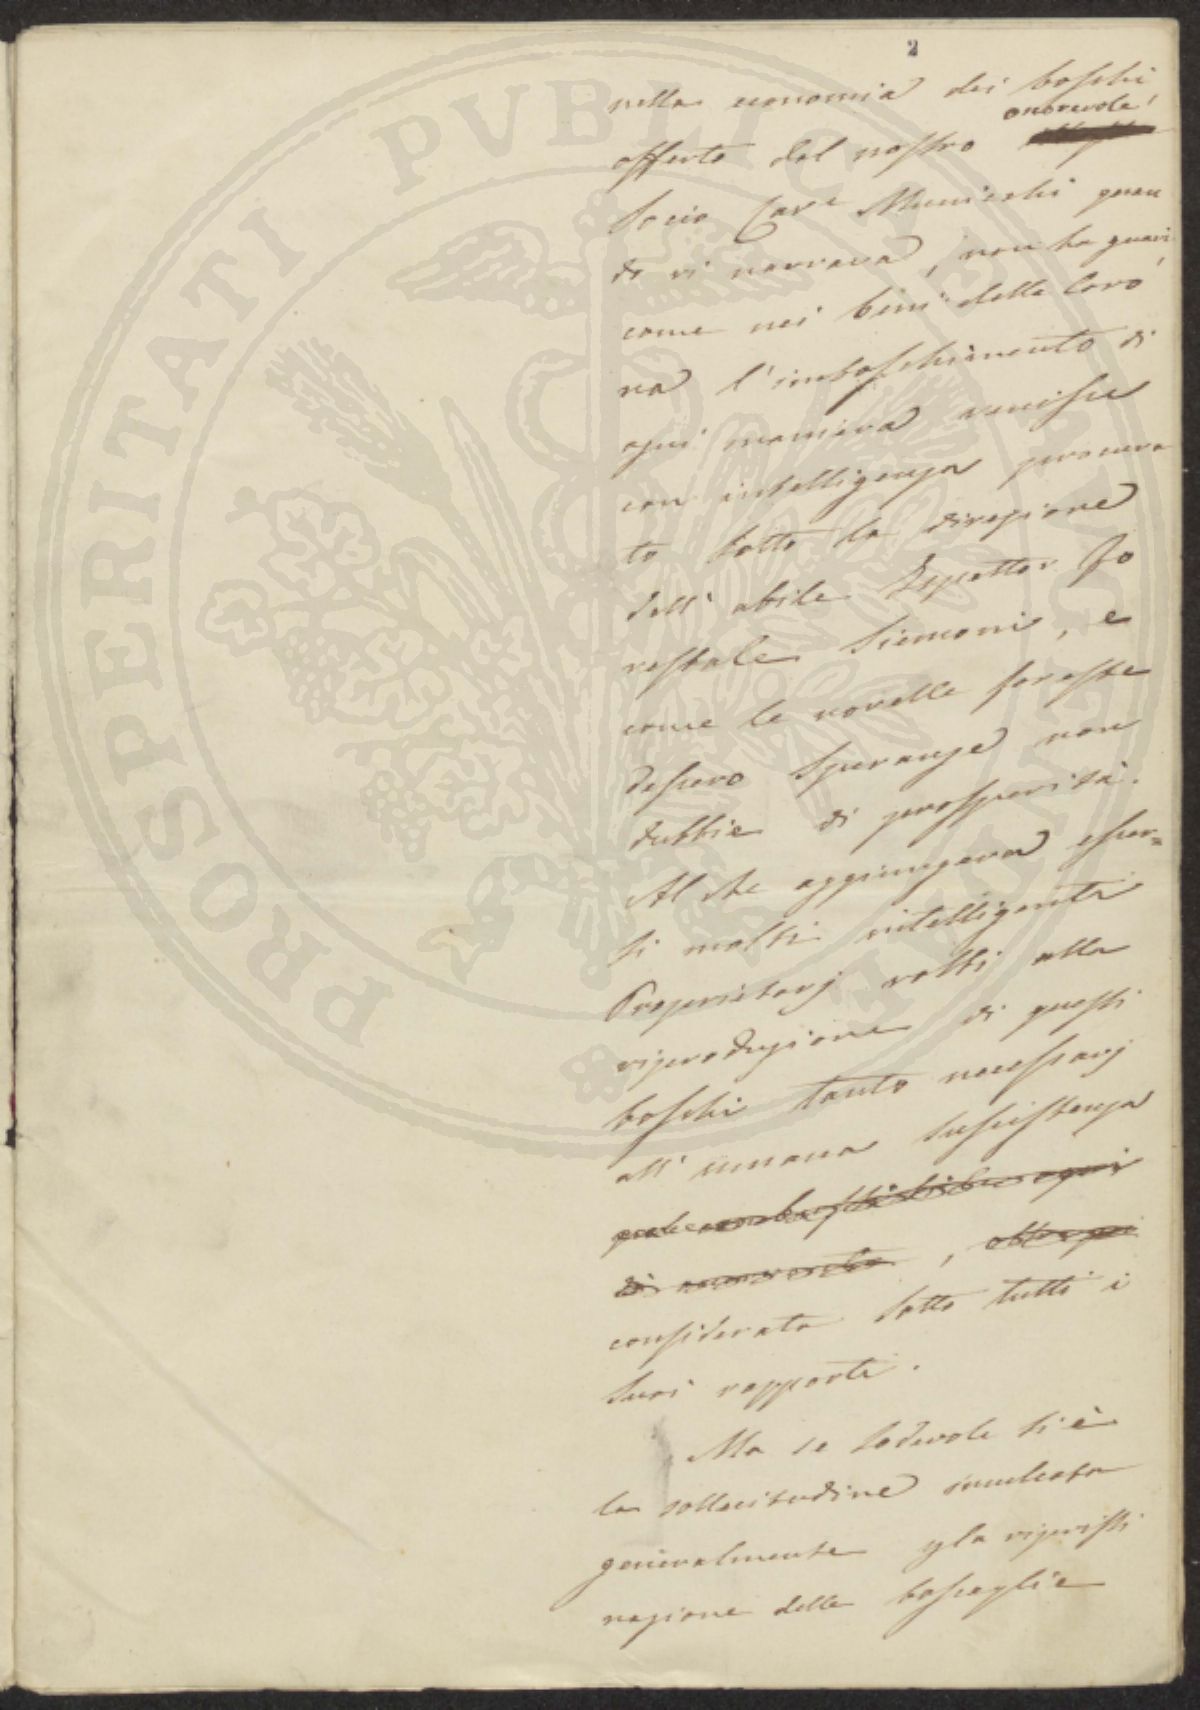 2
nella economia dei boschi
onorevole
offerto dal nostro
Socio Cav.e Municchi quan
do vi narrava, non ha guari,
come nei beni della Coro
na l'imboschimento di
ogni maniera venisse
con intelligenza procura
to sotto la direzione
dell' abile Ispettor Fo
restale Siemoni, e
come le novelle foreste
dessero speranze non
dubbie di prosperità.
Al che aggiungeva esser=
si molti intelligenti
Proprietarj volti alla
riproduzione di questi
boschi tanto necessarj
all' umana sussistenza
,
considerata sotto tutti i
suoi rapporti.
Ma se lodevole si è
la sollecitudine inculcata
generalmente p la ripristi
nazione delle boscaglie
PROSPERITATI PVBLICAE AVGENDAE